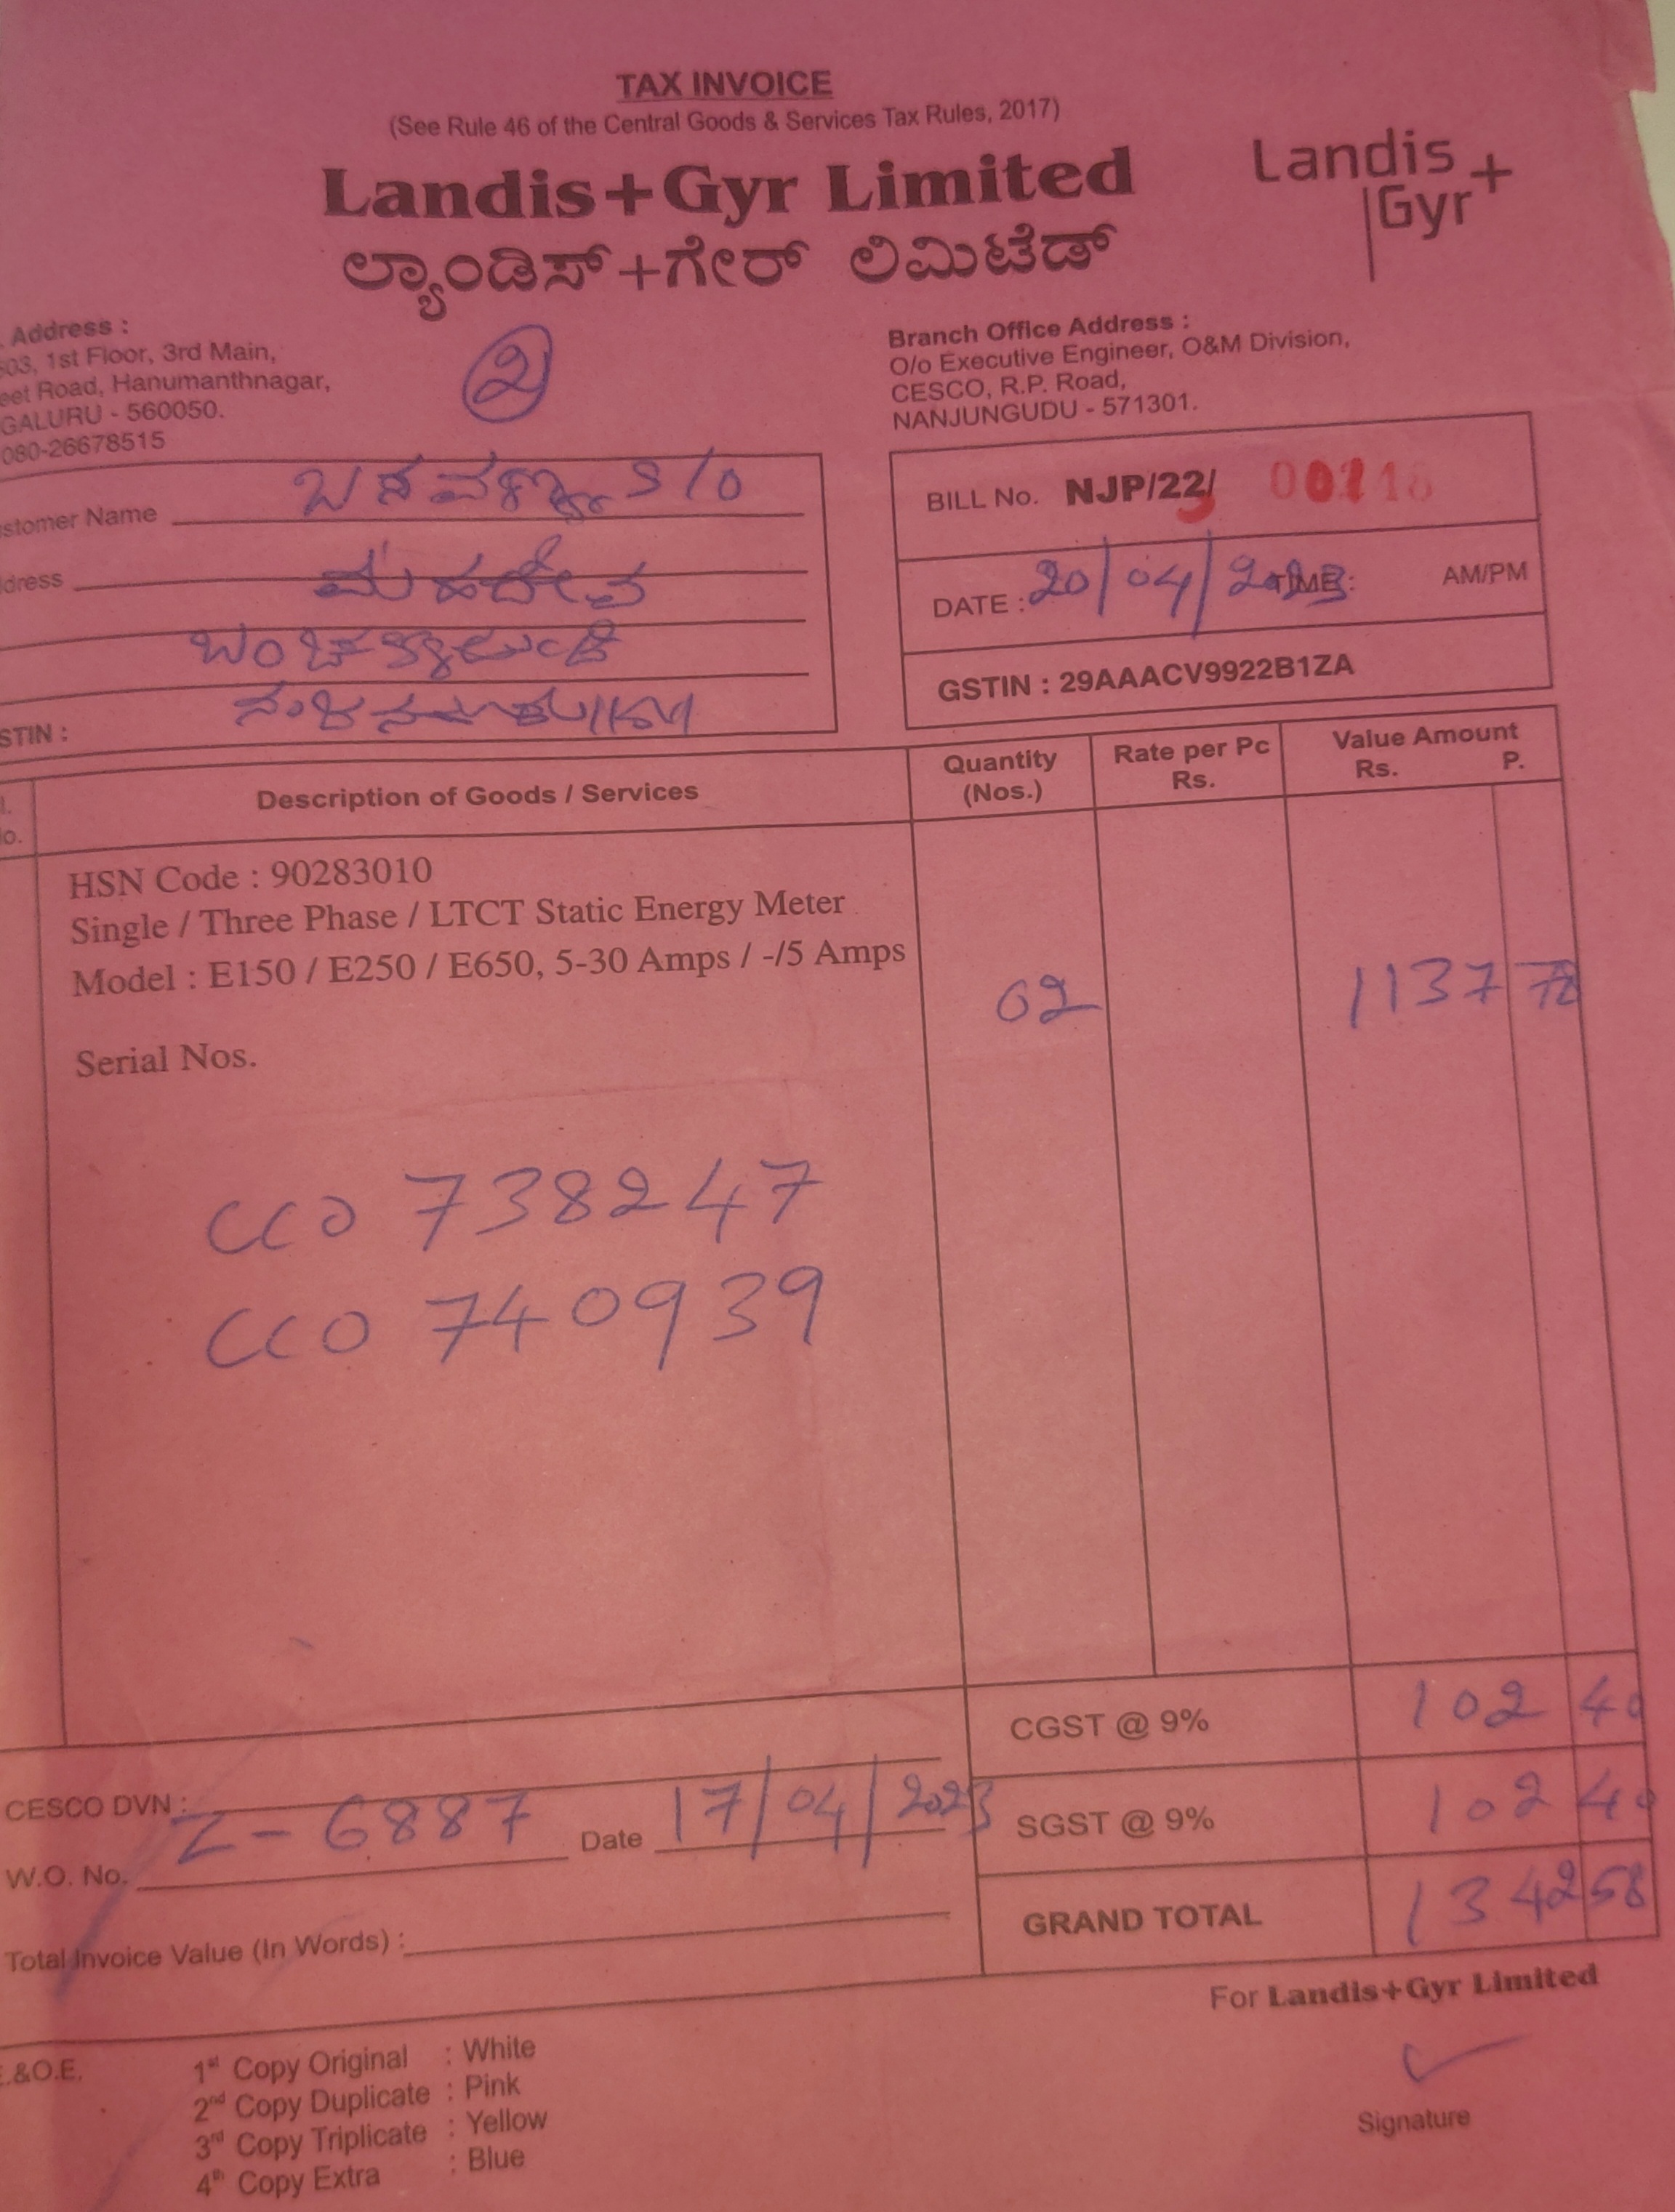 TAX INVOICE
(See Rule 46 of the Central Goods & Services Tax Rules, 2017)
Landis+Gyr Limited
Landis+
Gyr
ಲ್ಯಾಂಡಿಸ್+ಗೇರ್ ಲಿಮಿಟೆಡ್
Address :
1st Floor, 3rd Main,
Road, Hanumanthnagar,
GALURU - 560050.
080-26678515
2
Branch Office Address :
O/o Executive Engineer, O&M Division,
CESCO, R.P. Road,
NANJUNGUDU - 571301.
stomer Name ಬಸವಣ್ಣ S/o
dress ಮಹದೇವ
STIN :
BILL No. NJP/22/
DATE : 20/04/2023 TIME : AM/PM
GSTIN : 29AAACV9922B1ZA
Description of Goods / Services
Quantity
(Nos.)
Rate per Pc
Rs.
Value Amount
Rs. P.
HSN Code : 90283010
Single / Three Phase / LTCT Static Energy Meter
Model : E150 / E250 / E650, 5-30 Amps / -/5 Amps
02 1137 78
Serial Nos.
CCO 738247
CCO 740939
CGST @ 9% 102 40
SGST @ 9% 102 40
GRAND TOTAL 1342 58
CESCO DVN :
W.O. No. Z-6887 Date 17/04/2023
Total Invoice Value (In Words) :
For Landis+Gyr Limited
Signature
E.&O.E.
1st Copy Original : White
2nd Copy Duplicate : Pink
3rd Copy Triplicate : Yellow
4th Copy Extra : Blue